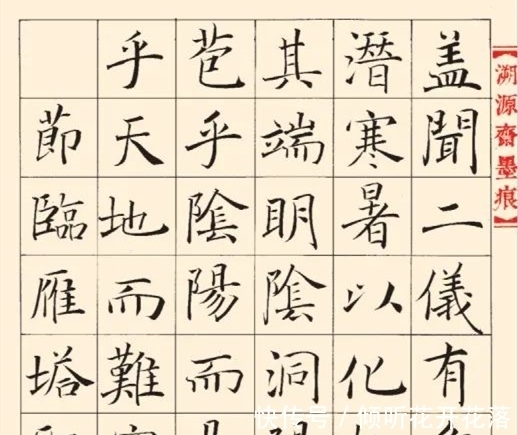 【溯源齋墨痕】
盖聞二儀有
潛寒暑以化
其端明陰洞
苞乎陰陽而
乎天地而難
節臨雁塔
快传号 / 倾听花开花落